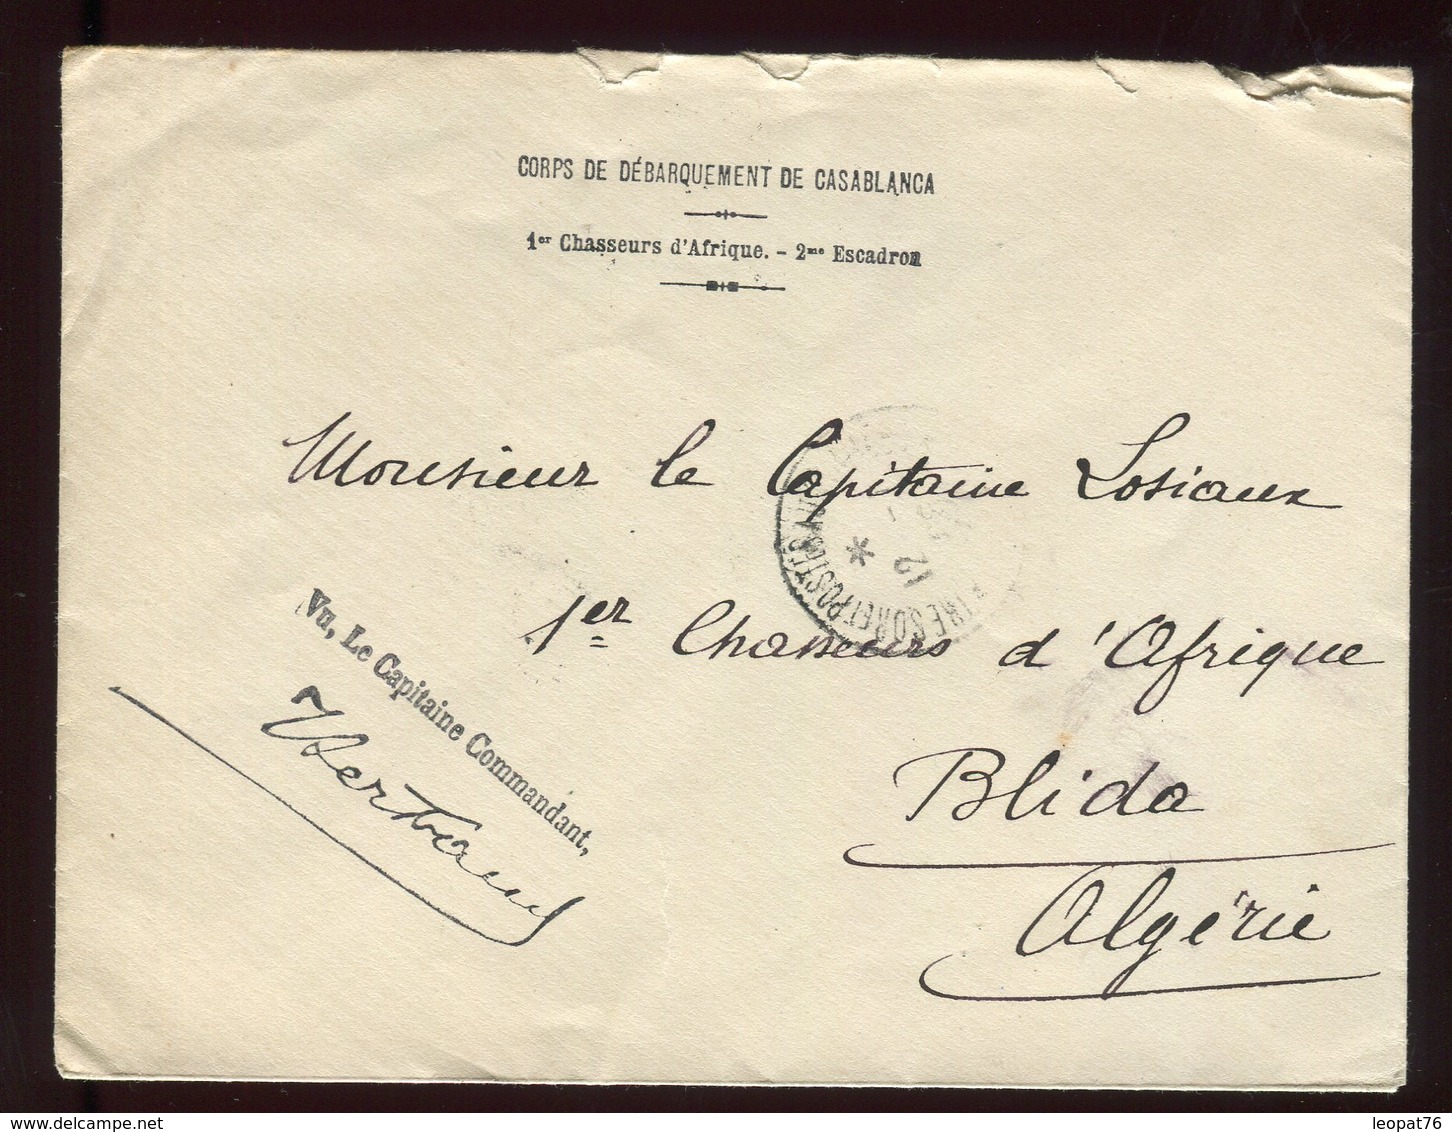 CORPS DE DÉBARQUEMENT DE CASABLANCA
1er Chasseurs d'Afrique. - 2me Escadron
Monsieur le Capitaine Losiaux
1er Chasseurs d'Afrique
Blida
Algérie
Vu, Le Capitaine Commandant,
Bertrand
TRESOR ET POSTES
12
delcampe.net
leopat76